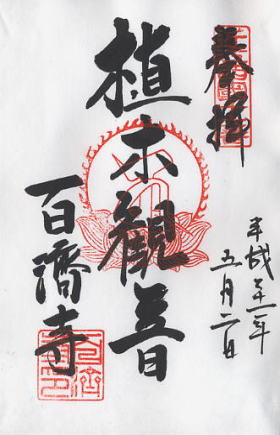 奉拝
平成二十一年
五月二日
植木観音
百済寺